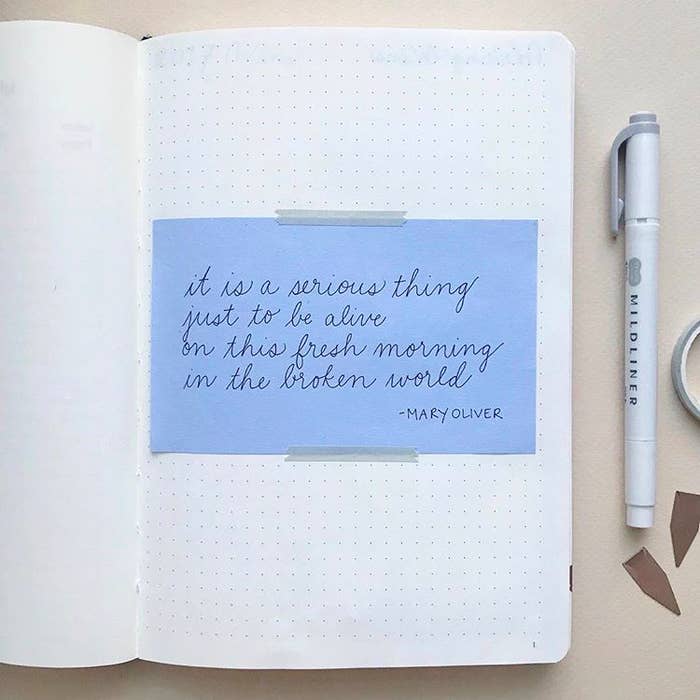 it is a serious thing
just to be alive
on this fresh morning
in the broken world
-MARY OLIVER
MILDLINER
1